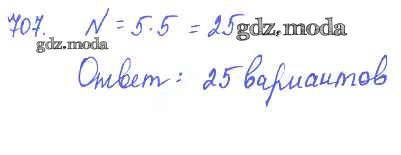 707. N = 5·5 = 25 gdz.moda
gdz.moda
Ответ: 25 вариантов